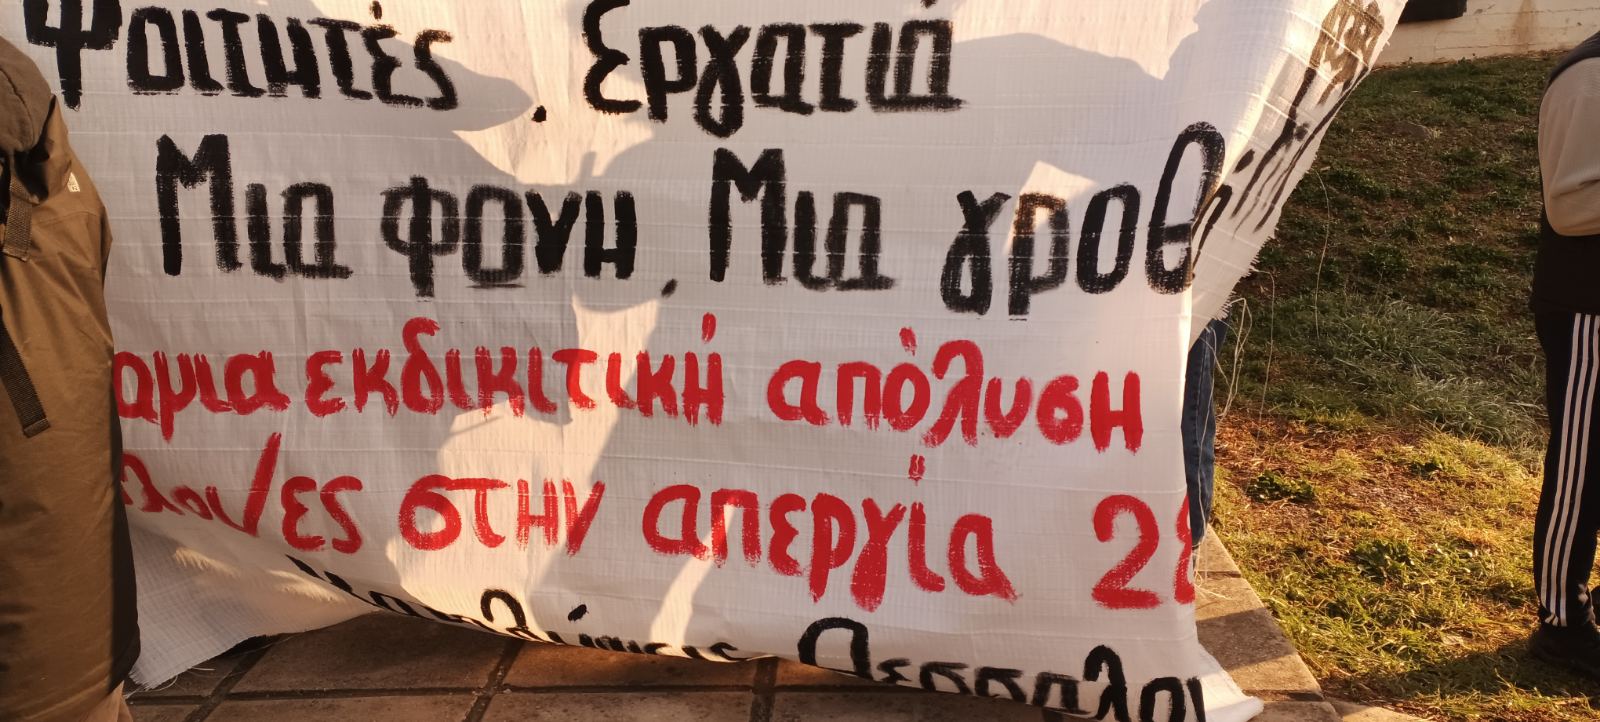 Φοιτητές, Εργατιά
Μια φονη, Μια γροθ
αμια εκδικιτική απόλυση
λοι/ες στην απεργία 28
Θεσσαλο